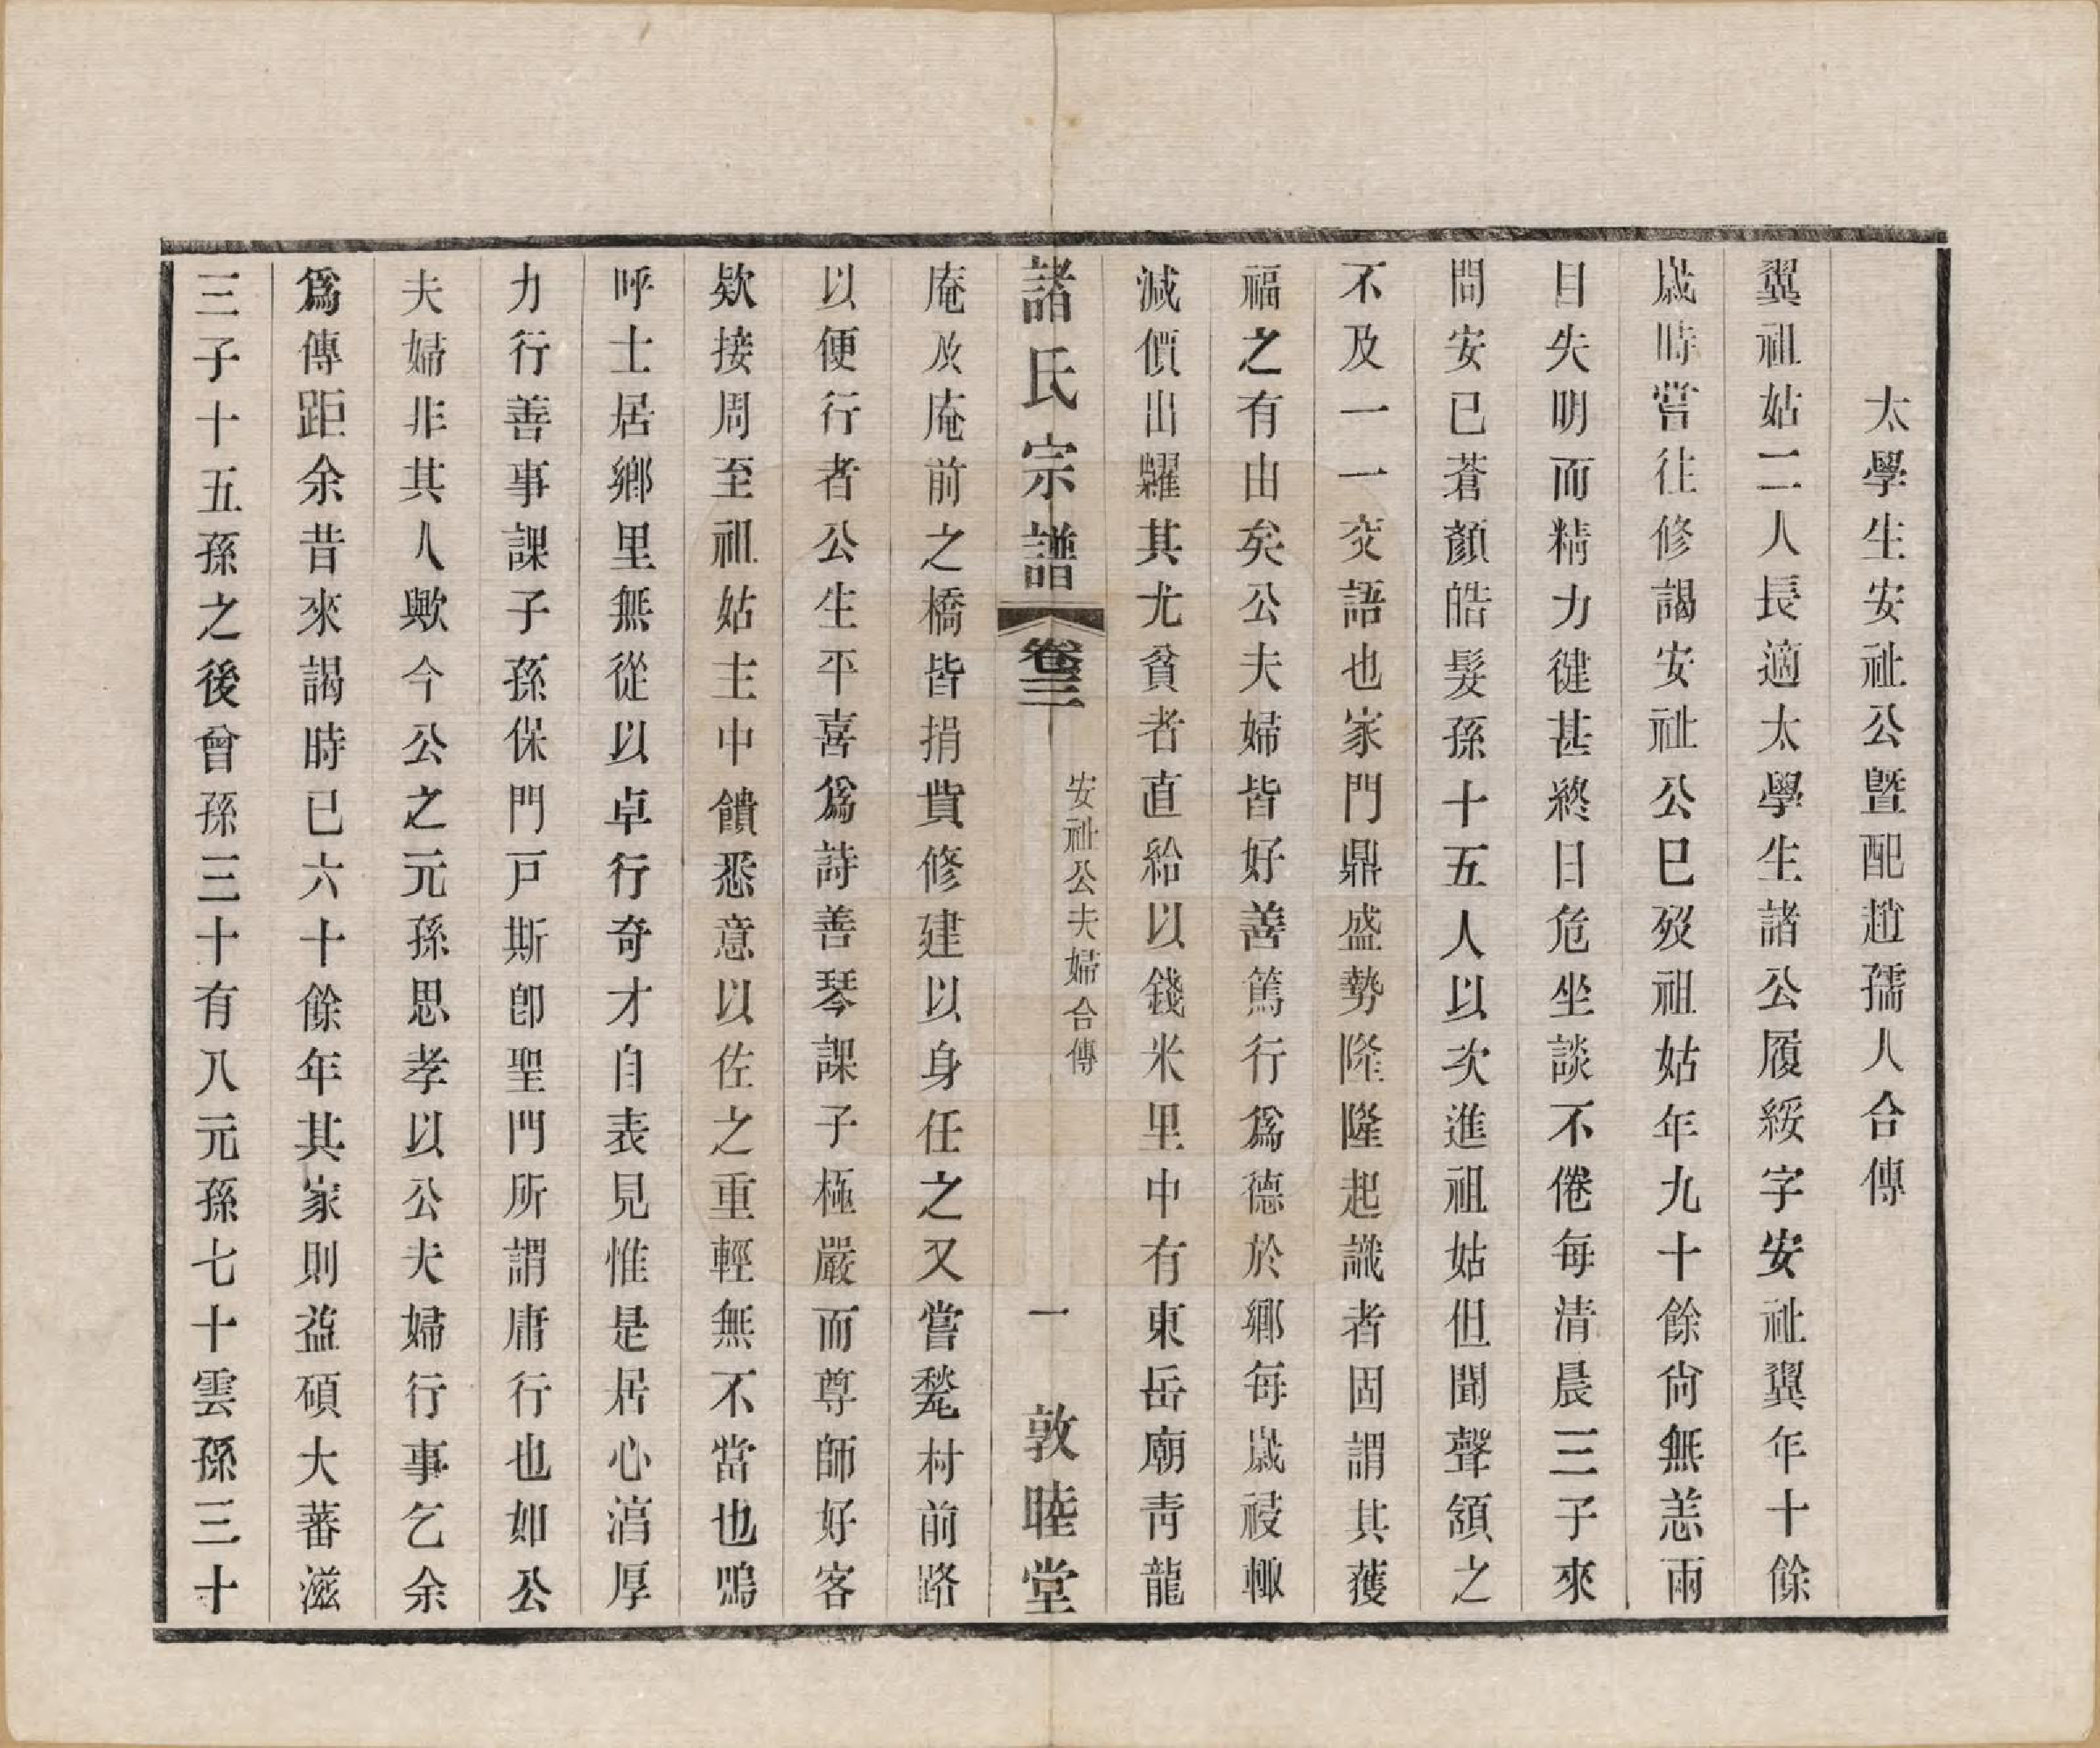 太學生安祉公暨配趙孺人合傳
翼祖姑二人長適太學生諸公履綏字安祉翼年十餘
歲時嘗往修謁安祉公已歿祖姑年九十餘尙無恙兩
目失明而精力健甚終日危坐談不倦每清晨三子來
問安已蒼顏皓髮孫十五人以次進祖姑但聞聲頷之
不及一一交語也家門鼎盛勢隆隆起識者固謂其獲
福之有由矣公夫婦皆好善篤行爲德於鄉每歲祲輒
減價出糶其尤貧者直給以錢米里中有東岳廟靑龍
諸氏宗譜
卷三
安祉公夫婦合傳
一
敦睦堂
庵及庵前之橋皆捐貲修建以身任之又嘗甃村前路
以便行者公生平喜爲詩善琴課子極嚴而尊師好客
欵接周至祖姑主中饋悉意以佐之重輕無不當也嗚
呼士居鄉里無從以卓行奇才自表見惟是居心湻厚
力行善事課子孫保門戸斯卽聖門所謂庸行也如公
夫婦非其人歟今公之元孫思孝以公夫婦行事乞余
爲傳距余昔來謁時已六十餘年其家則益碩大蕃滋
三子十五孫之後曾孫三十有八元孫七十雲孫三十